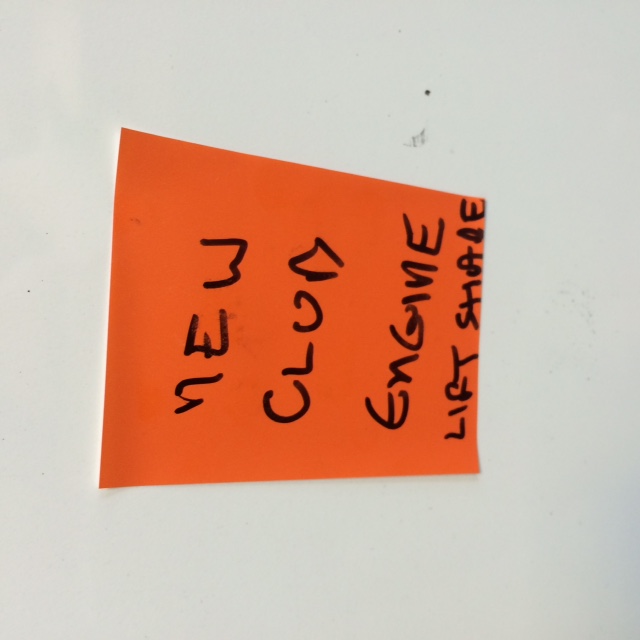 NEW
CLUB
ENGINE
LIFT SHARE